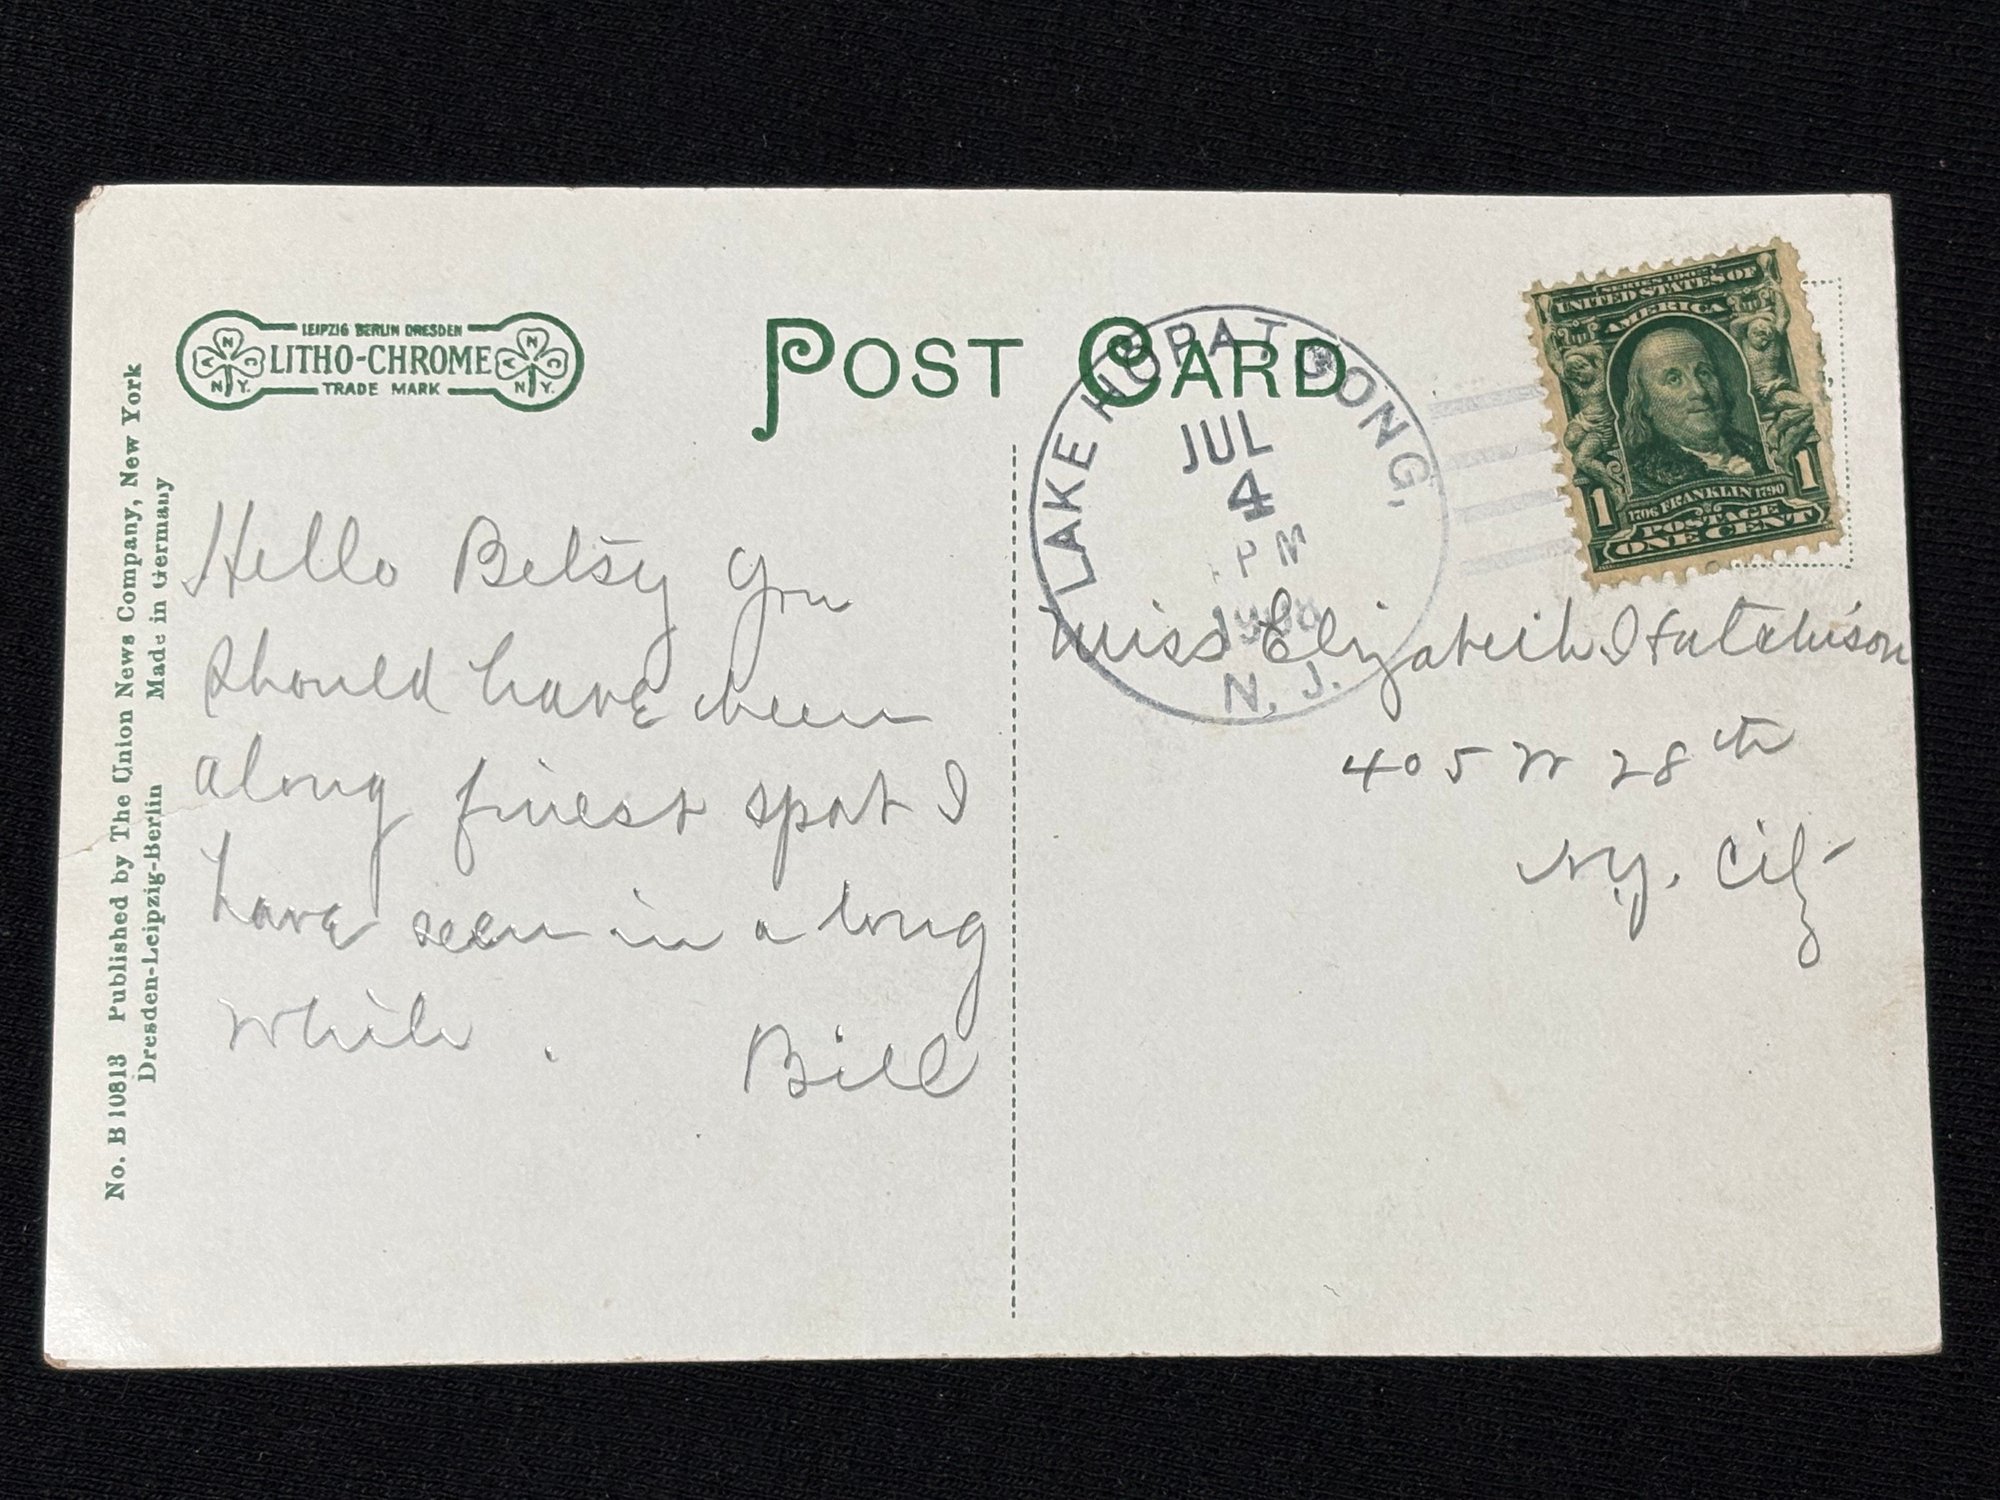 LEIPZIG BERLIN DRESDEN
LITHO-CHROME
TRADE MARK
U N C N.Y.
U N C N.Y.
POST CARD
LAKE HOPATCONG,
JUL
4
PM
N. J.
SERIES 1902
UNITED STATES OF
AMERICA
1706 FRANKLIN 1790
1 1
POSTAGE
ONE CENT
No. B 10813 Published by The Union News Company, New York
Dresden-Leipzig-Berlin Made in Germany
Hello Betsy You
should have been
along finest spot I
have seen in a long
while.
Bill
Miss Elizabeth Hutchison
405 W 28th
N.Y. City